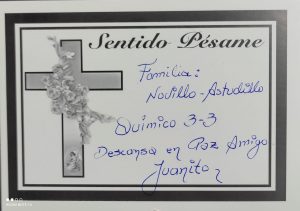 Sentido Pésame
Familia:
Novillo-Astudillo
Químico 3-3
Descansa en Paz Amigo
Juanito